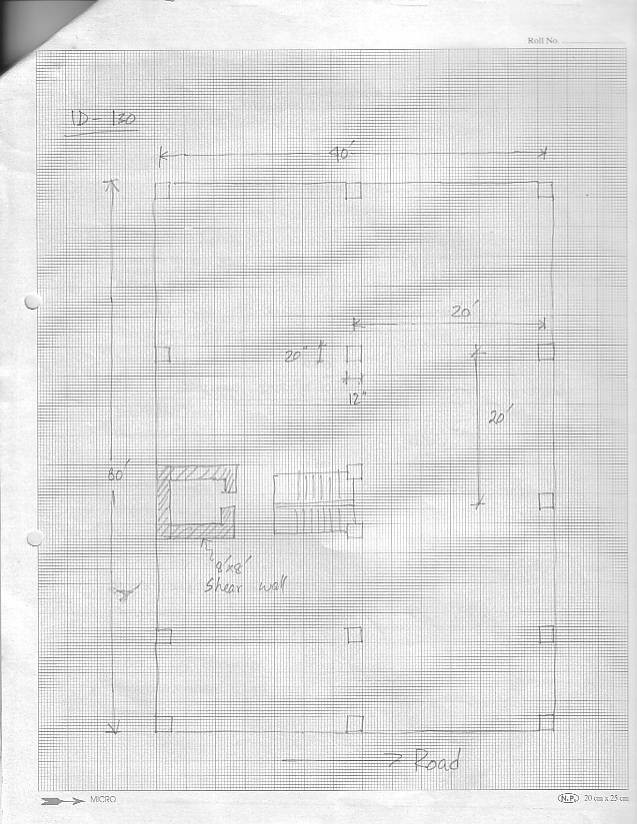 Roll No.
1D - 120
40'
20'
20"
12"
20'
80'
8'x8'
Shear wall
Road
MICRO
N.P. 20 cm x 25 cm